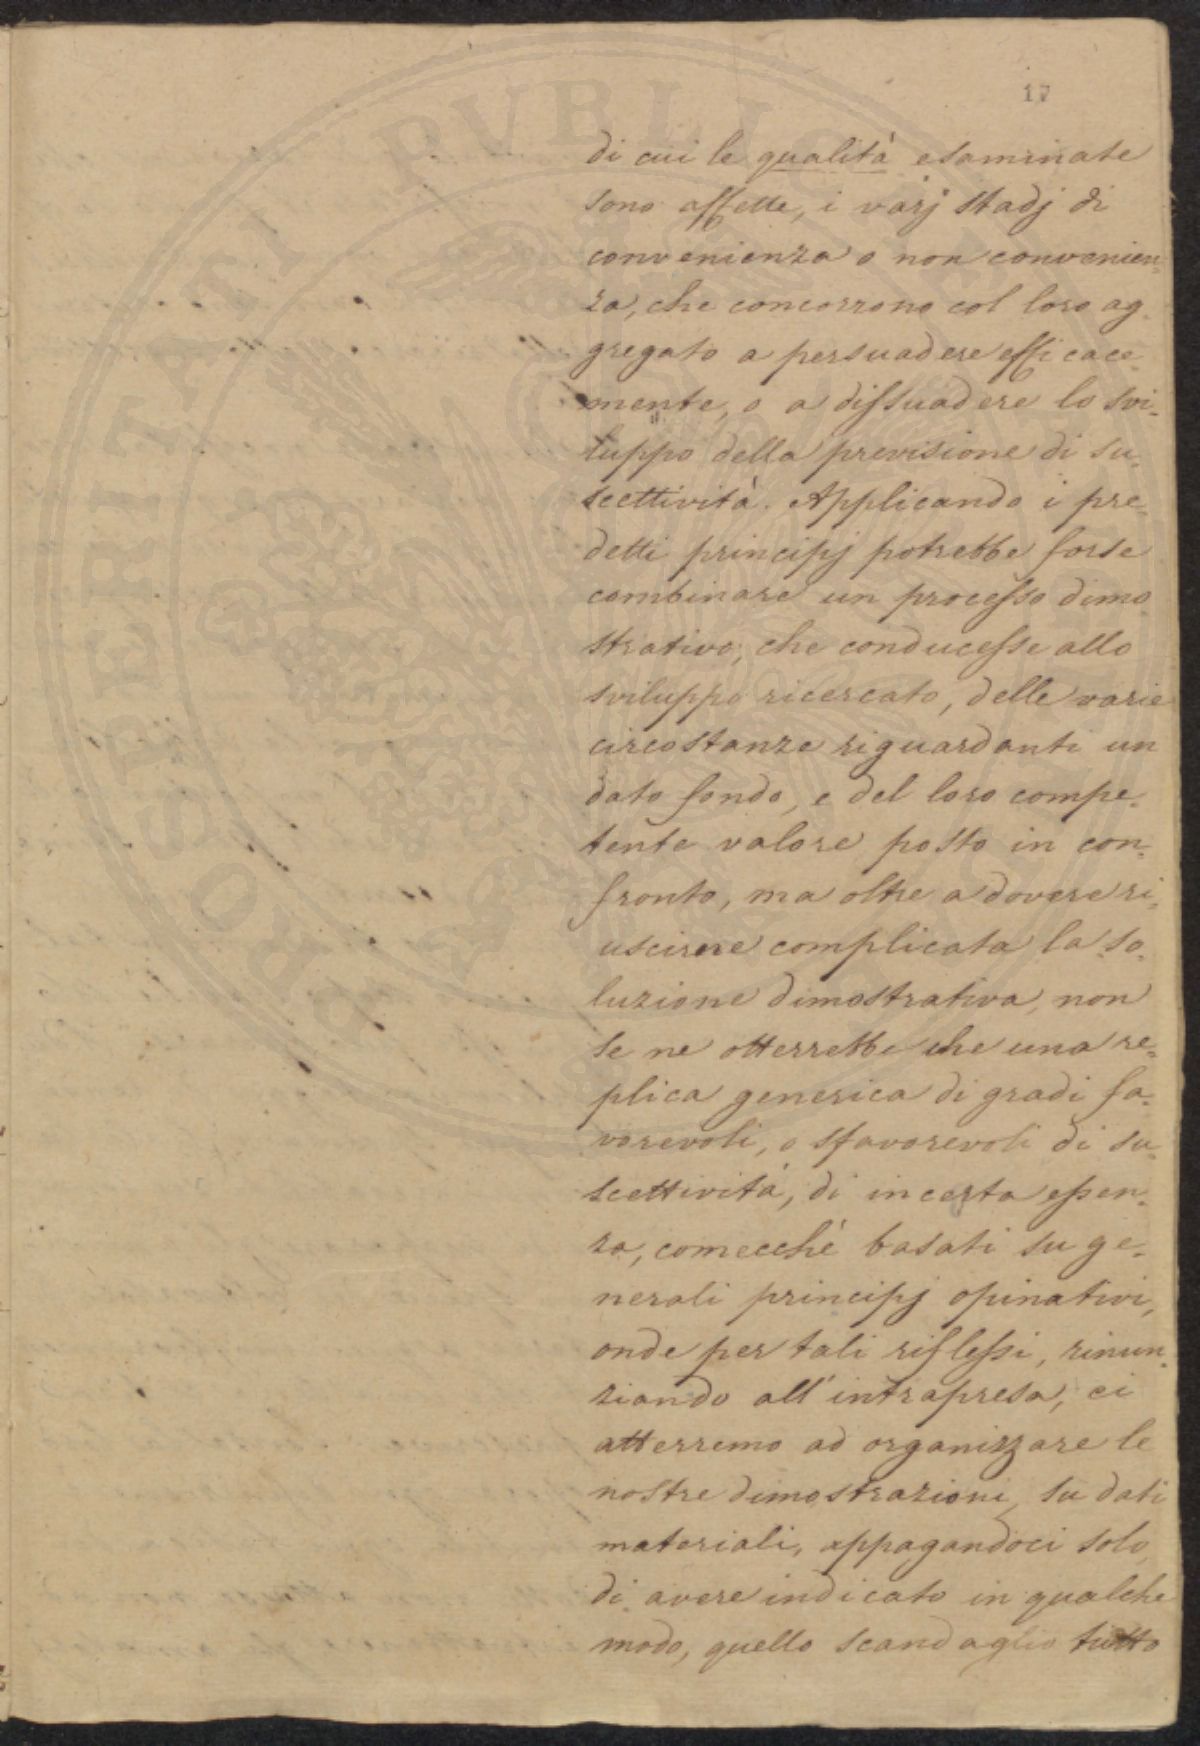 17
di cui le qualità esaminate
sono affette, i varj stadj di
convenienza o non convenien-
za, che concorrono col loro ag-
gregato a persuadere efficace-
mente, o a dissuadere lo svi-
luppo della previsione di su-
scettività. Applicando i pre-
detti principj potrebbe forse
combinare un processo dimo-
strativo, che conducesse allo
sviluppo ricercato, delle varie
circostanze riguardanti un
dato fondo, e del loro compe-
tente valore posto in con-
fronto, ma oltre a dovere ri-
uscirne complicata la so-
luzione dimostrativa, non
se ne otterrebbe che una re-
plica generica di gradi fa-
vorevoli, o sfavorevoli di su-
scettività, di incerta essen-
za, comecchè basati su ge-
nerali principj opinativi,
onde per tali riflessi, rinun-
ziando all'intrapresa, ci
atterremo ad organizzare le
nostre dimostrazioni su dati
materiali, appagandoci solo
di avere indicato in qualche
modo, quello scandaglio tutto
PROSPERITATI PVBLICAE